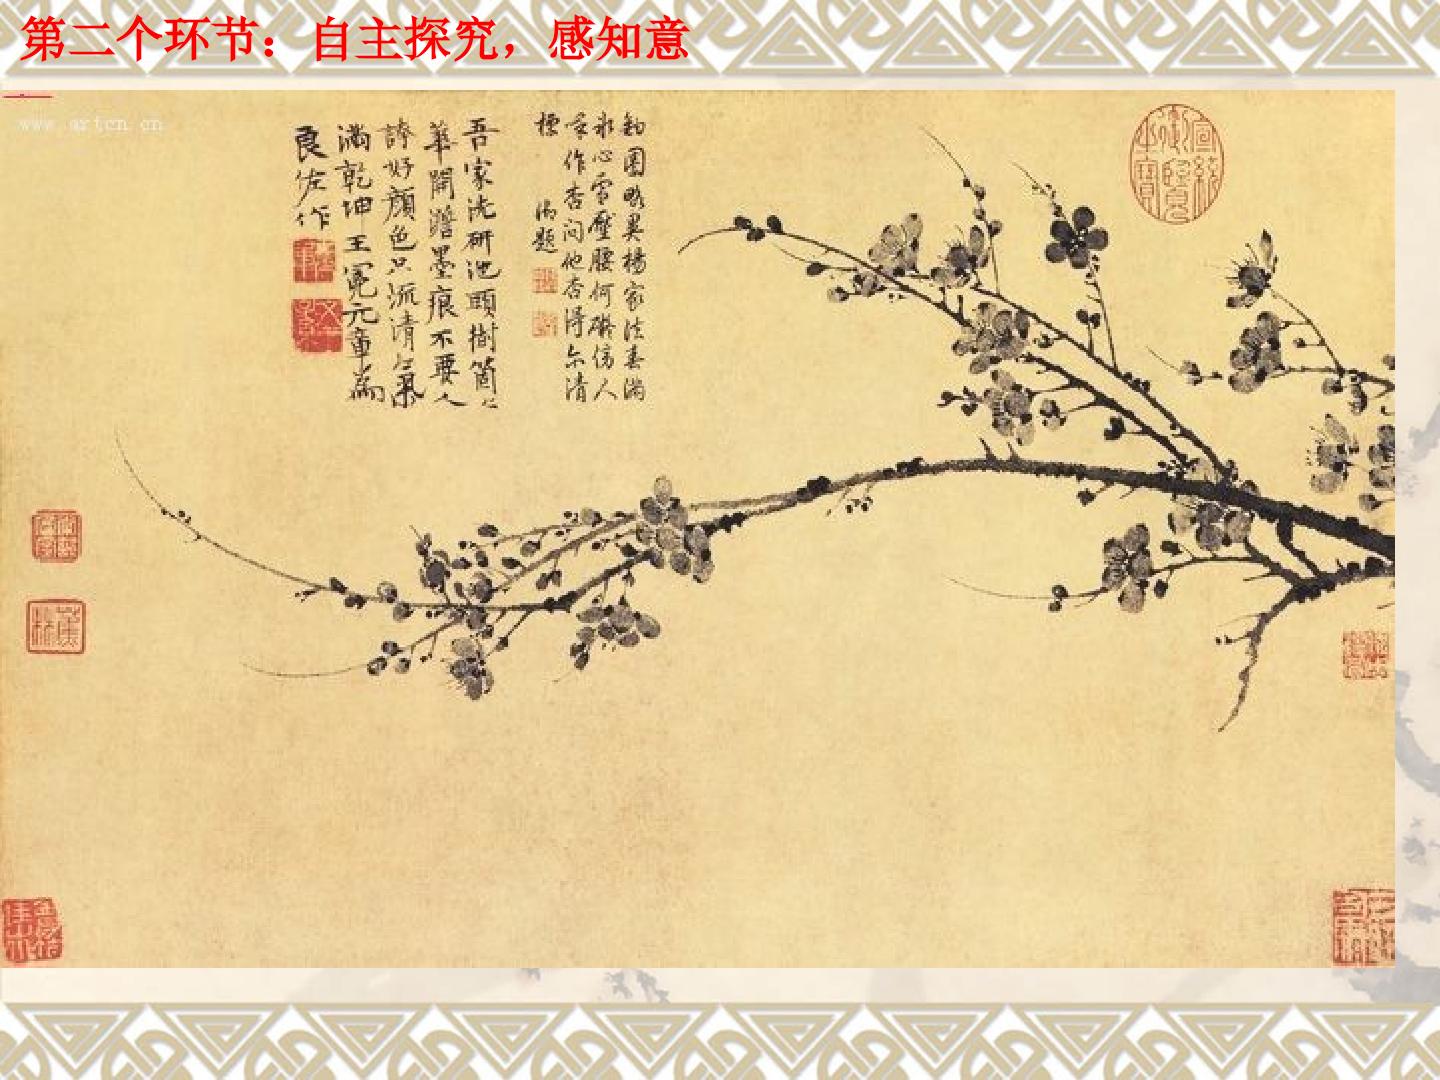 第二个环节：自主探究，感知意
www.artcn.cn
鈎圈略異楊家法春滿
冰心雪壓腰何礙傍人
呼作杏問他杏得尔清
標
御題
吾家洗研池頭樹箇〻
華開澹墨痕不要人
誇好顔色只流清气
滿乾坤王冕元章爲
良佐作